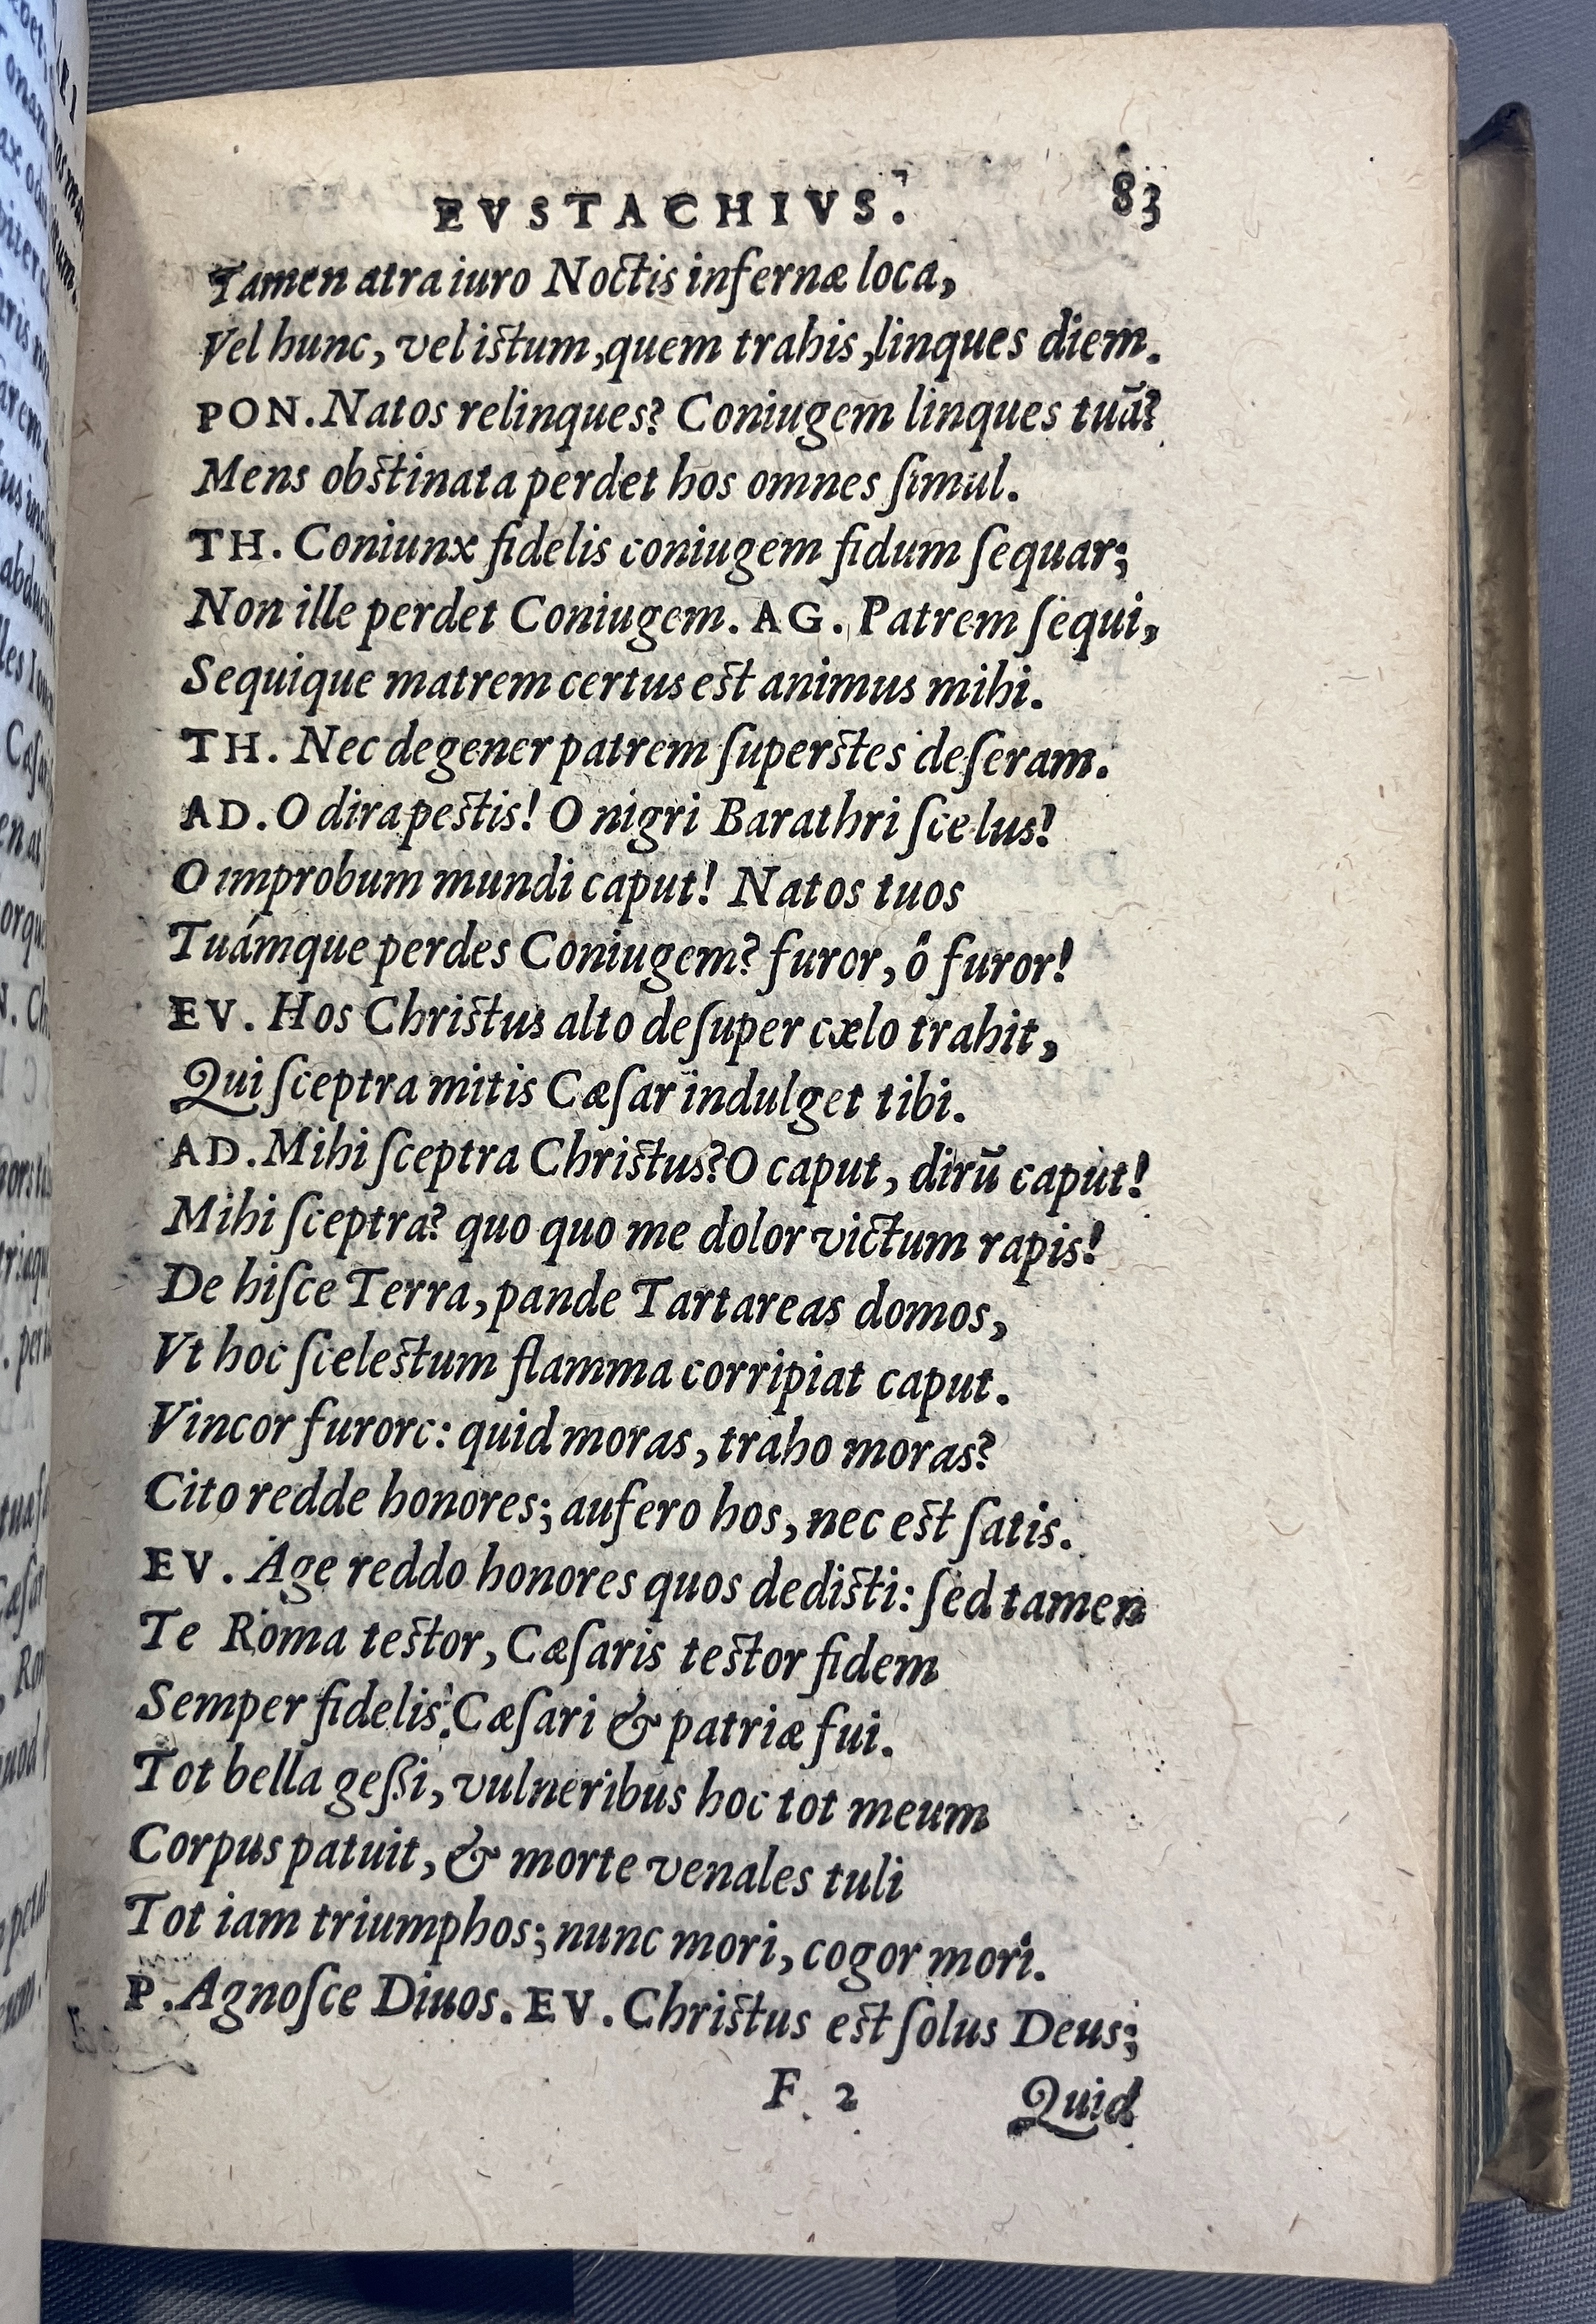 EVSTACHIVS. 83
Tamen atra iuro Noctis infernæ loca,
Vel hunc, vel istum, quem trahis, linques diem.
PON. Natos relinques? Coniugem linques tuā?
Mens obstinata perdet hos omnes ſimul.
TH. Coniunx fidelis coniugem fidum ſequar;
Non ille perdet Coniugem. AG. Patrem ſequi,
Sequique matrem certus est animus mihi.
TH. Nec degener patrem ſuperstes deſeram.
AD. O dira pestis! O nigri Barathri ſcelus!
O improbum mundi caput! Natos tuos
Tuámque perdes Coniugem? furor, ô furor!
EV. Hos Christus alto deſuper cælo trahit,
Qui ſceptra mitis Cæſar indulget tibi.
AD. Mihi ſceptra Christus? O caput, dirū caput!
Mihi ſceptra? quo quo me dolor victum rapis!
De hiſce Terra, pande Tartareas domos,
Vt hoc ſcelestum flamma corripiat caput.
Vincor furore: quid moras, traho moras?
Cito redde honores; aufero hos, nec est ſatis.
EV. Age reddo honores quos dedisti: ſed tamen
Te Roma testor, Cæſaris testor fidem
Semper fidelis Cæſari & patriæ fui.
Tot bella geßi, vulneribus hoc tot meum
Corpus patuit, & morte venales tuli
Tot iam triumphos; nunc mori, cogor mori.
P. Agnoſce Diuos. EV. Christus est ſolus Deus;
F 2 Quid